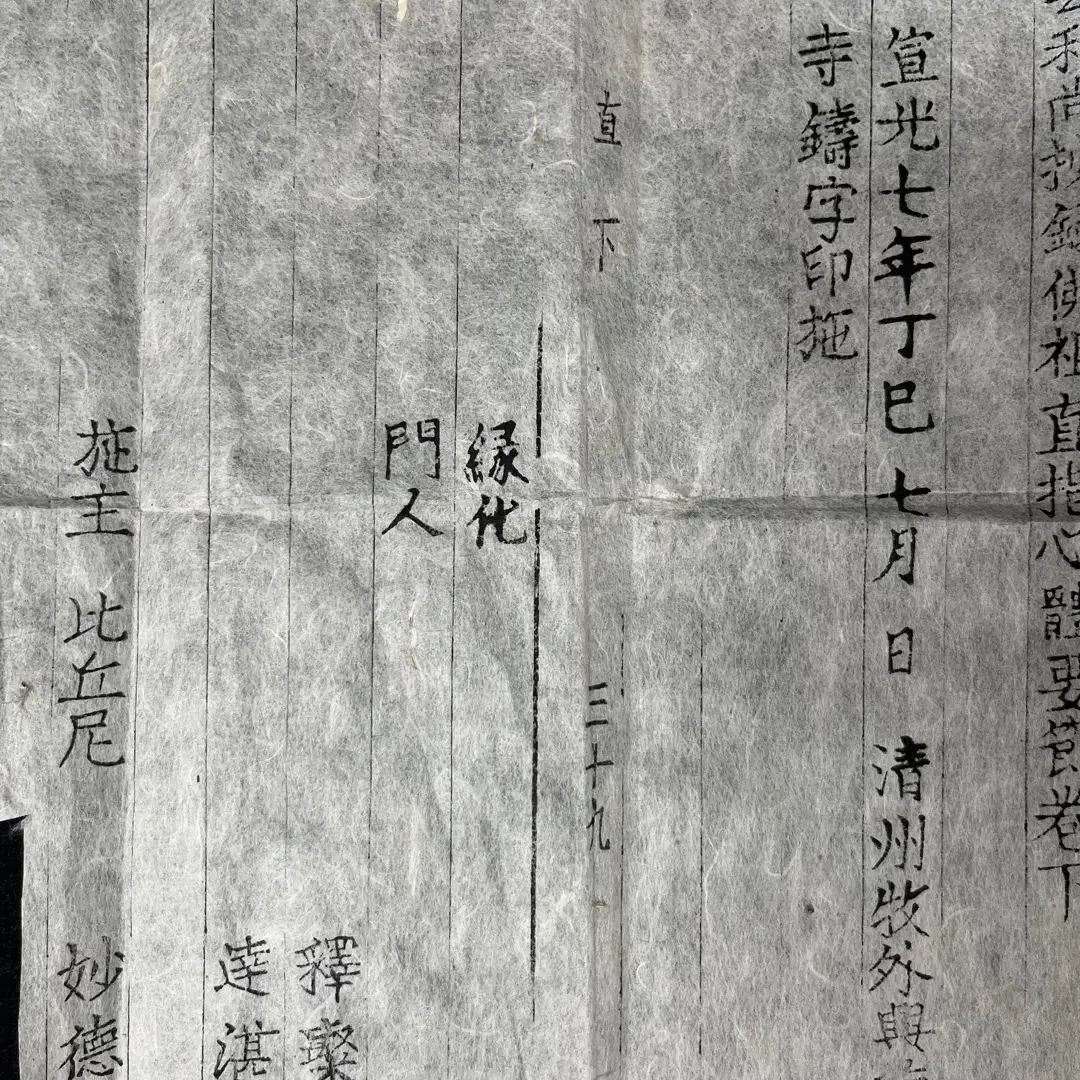 和尚抄錄佛祖直指心體要節卷下
宣光七年丁巳七月 日 清州牧外興
寺鑄字印施
直下 三十九
緣化
門人
釋璨
達湛
施主 比丘尼 妙德